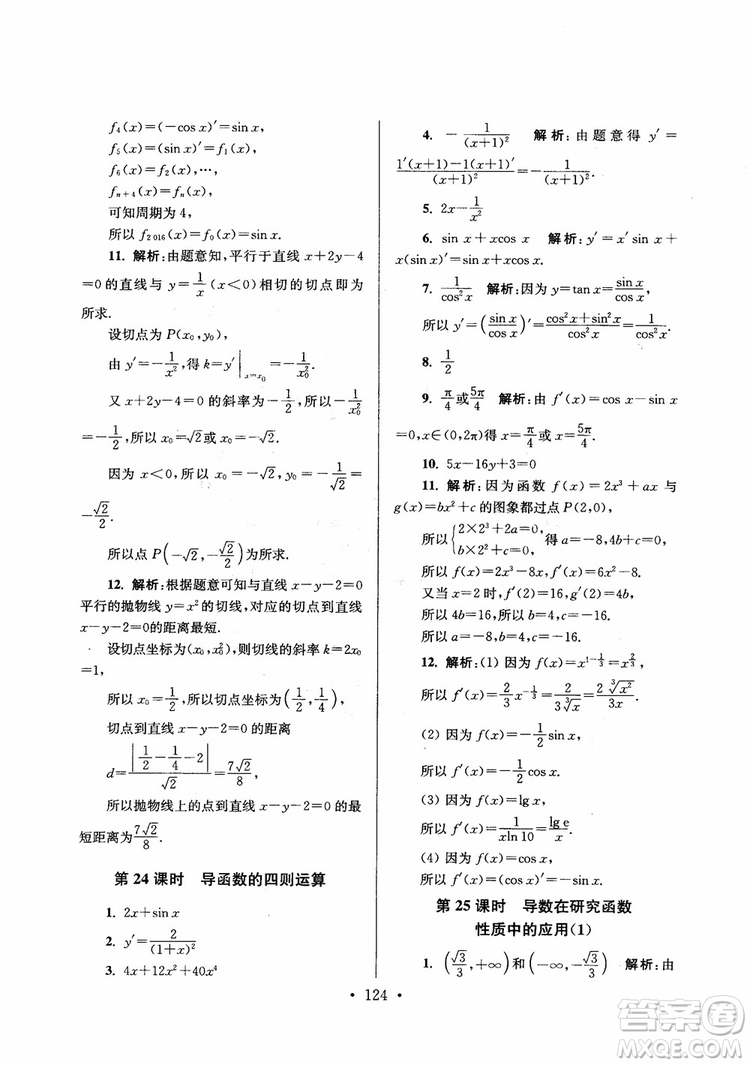 f₄(x)=(-cos x)′=sin x,
f₅(x)=(sin x)′=f₁(x),
f₆(x)=f₂(x),…,
fₙ₊₄(x)=fₙ(x),
可知周期为 4,
所以 f₂₀₁₆(x)=f₀(x)=sin x.
11. 解析:由题意知,平行于直线 x+2y-4
=0 的直线与 y=1/x (x<0)相切的切点即为
所求.
设切点为 P(x₀,y₀),
由 y′=-1/x²,得 k=y′|ₓ₌ₓ₀=-1/x₀².
又 x+2y-4=0 的斜率为-1/2,所以-1/x₀²
=-1/2,所以 x₀=√2或 x₀=-√2.
因为 x<0,所以 x₀=-√2,y₀=1/-√2=
-√2/2.
所以点 P(-√2,-√2/2)为所求.
12. 解析:根据题意可知与直线 x-y-2=0
平行的抛物线 y=x² 的切线,对应的切点到直线
x-y-2=0 的距离最短.
设切点坐标为(x₀,x₀²),则切线的斜率 k=2x₀
=1,
所以 x₀=1/2,所以切点坐标为(1/2,1/4),
切点到直线 x-y-2=0 的距离
d=|1/2-1/4-2|/√2=7√2/8,
所以抛物线上的点到直线 x-y-2=0 的最
短距离为7√2/8.
第 24 课时 导函数的四则运算
1. 2x+sin x
2. y′=2/(1+x)²
3. 4x+12x²+40x⁴
4. -1/(x+1)² 解析:由题意得 y′=
1′(x+1)-1(x+1)′/(x+1)²=-1/(x+1)².
5. 2x-1/x²
6. sin x+xcos x 解析:y′=x′sin x+
x(sin x)′=sin x+xcos x.
7. 1/cos²x 解析:因为 y=tan x=sin x/cos x,
所以 y′=(sin x/cos x)′=cos²x+sin²x/cos²x=1/cos²x.
8. 1/2
9. π/4或5π/4 解析:由 f′(x)=cos x-sin x
=0,x∈(0,2π)得 x=π/4或 x=5π/4.
10. 5x-16y+3=0
11. 解析:因为函数 f(x)=2x³+ax 与
g(x)=bx²+c 的图象都过点 P(2,0),
所以{2×2³+2a=0, b×2²+c=0, 得 a=-8,4b+c=0,
所以 f(x)=2x³-8x,所以 f′(x)=6x²-8.
又当 x=2 时,f′(2)=16,g′(2)=4b,
所以 4b=16,所以 b=4,c=-16.
所以 a=-8,b=4,c=-16.
12. 解析:(1) 因为 f(x)=x^(1-1/3)=x^(2/3),
所以 f′(x)=2/3 x^(-1/3)=2/3∛x=2∛x²/3x.
(2) 因为 f(x)=-1/2sin x,
所以 f′(x)=-1/2cos x.
(3) 因为 f(x)=lg x,
所以 f′(x)=1/xln 10=lg e/x.
(4) 因为 f(x)=cos x,
所以 f′(x)=(cos x)′=-sin x.
第 25 课时 导数在研究函数
性质中的应用(1)
1. (√3/3,+∞)和(-∞,-√3/3) 解析:由
· 124 ·
答案圈
MXQE.COM